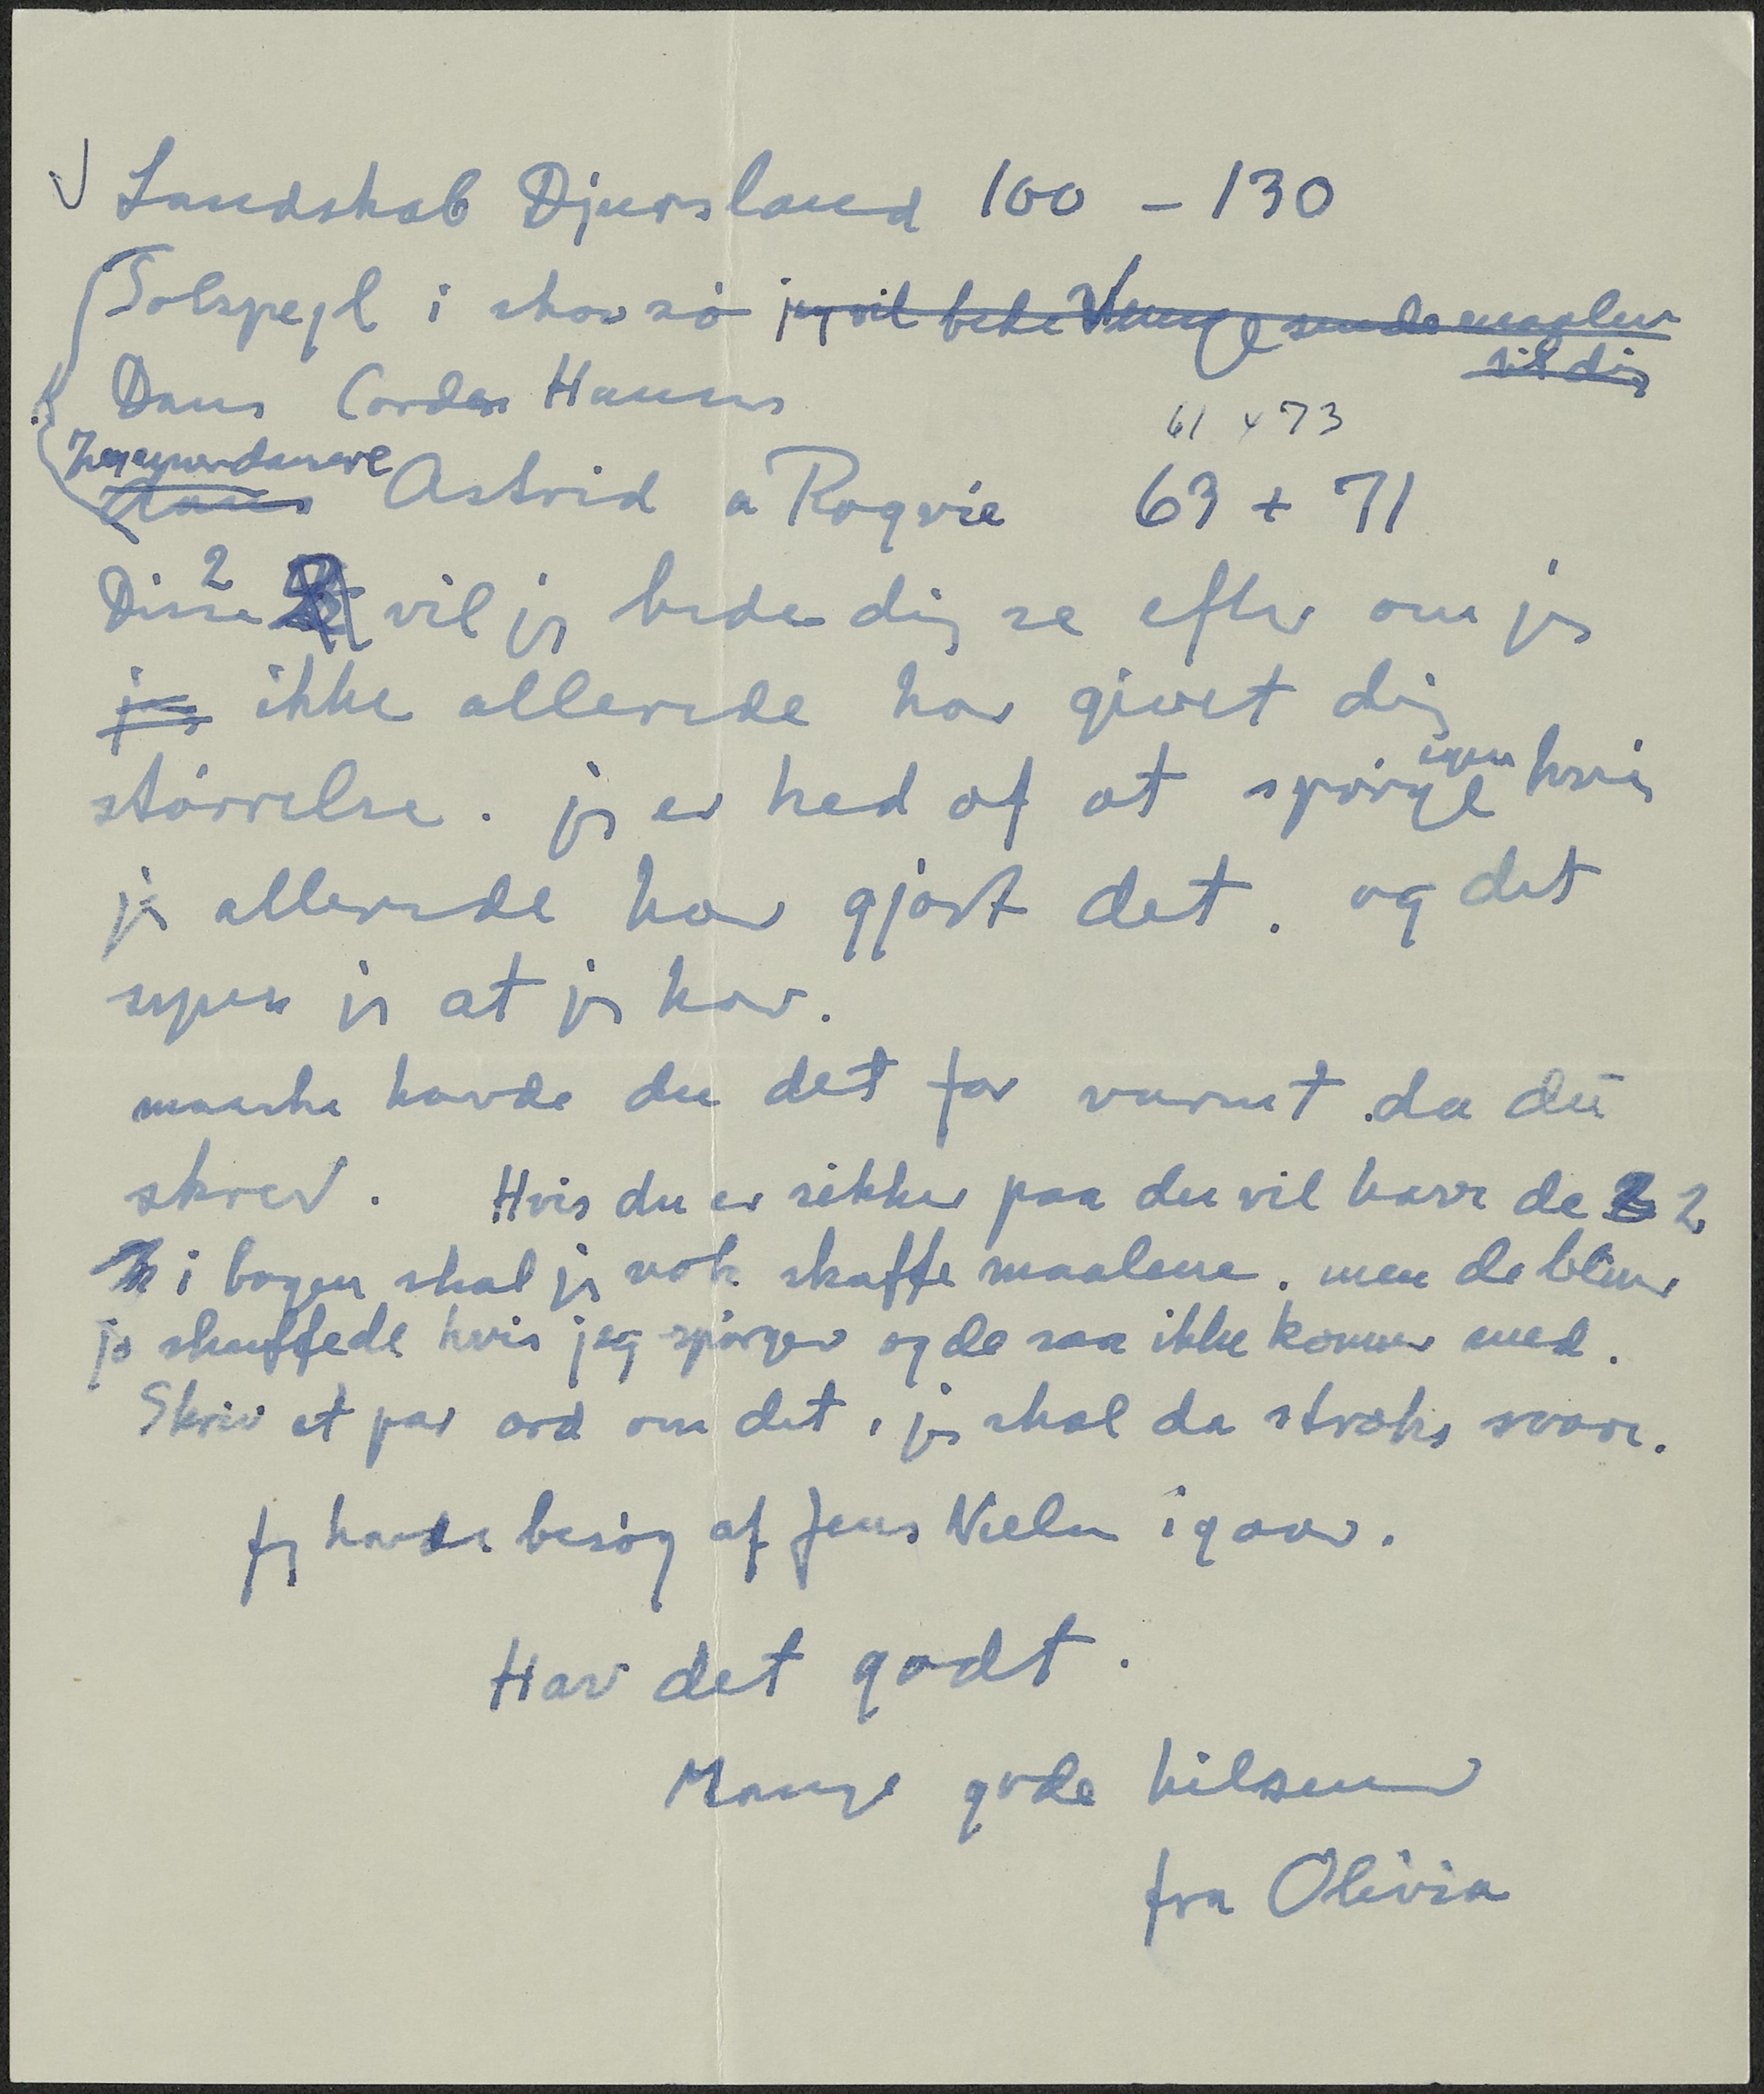 Landskab Djursland 100 – 130
Solspejl i skovsø jeg vil bede Venge sende maalene
til dig
Dans Cordes Hanns
61 x 73
Zigeunerdansere
dans Astrid a Rogvie 63 + 71
Disse 2 vil jeg bede dig se efter om jeg
jeg ikke allerede har givet dig
størrelse. jeg er ked af at spørge igen hvis
jeg allerede har gjort det. og det
synes jeg at jeg har.
maaske havde du det for varmt da du
skrev. Hvis du er sikker paa du vil have de 2
i bogen skal jeg nok skaffe maalene. men de bliver
jo skuffede hvis jeg spørger og de saa ikke kommer med.
Skriv et par ord om det, jeg skal da straks svare.
Jeg havde besøg af Jens Nielsen igaar.
Hav det godt.
Mange gode hilsener
fra Olivia